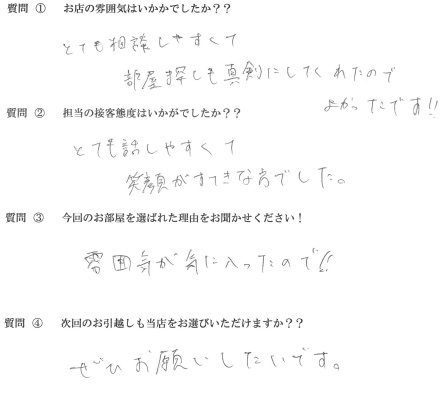 質問 ① お店の雰囲気はいかかでしたか？？
とても相談しやすくて
部屋探しも真剣にしてくれたので
よかったです!!
質問 ② 担当の接客態度はいかがでしたか？？
とても話しやすくて
笑顔がすてきな方でした。
質問 ③ 今回のお部屋を選ばれた理由をお聞かせください！
雰囲気が気に入ったので!!
質問 ④ 次回のお引越しも当店をお選びいただけますか？？
ぜひお願いしたいです。